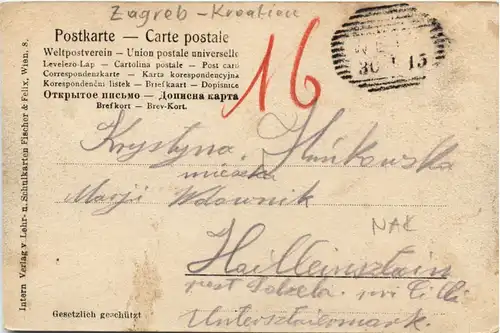 Zagreb - Kroatien
Postkarte — Carte postale
Weltpostverein – Union postale universelle
Levelezo-Lap — Cartolina postale — Post card
Correspondenzkarte — Karta korespondencyjna
Korespondenční listek – Briefkaart – Dopisnice
Открытое письмо — Дописна карта
Brefkort — Brev-Kort.
16
30 15
Krystyna Hańkowska
Marji Wdownik
NAK
Heilleinsztein
post
Untersteiermark
Gesetzlich geschützt
Intern Verlag v Lehr- u. Schulkarten Fischer & Felix, Wien, 8.